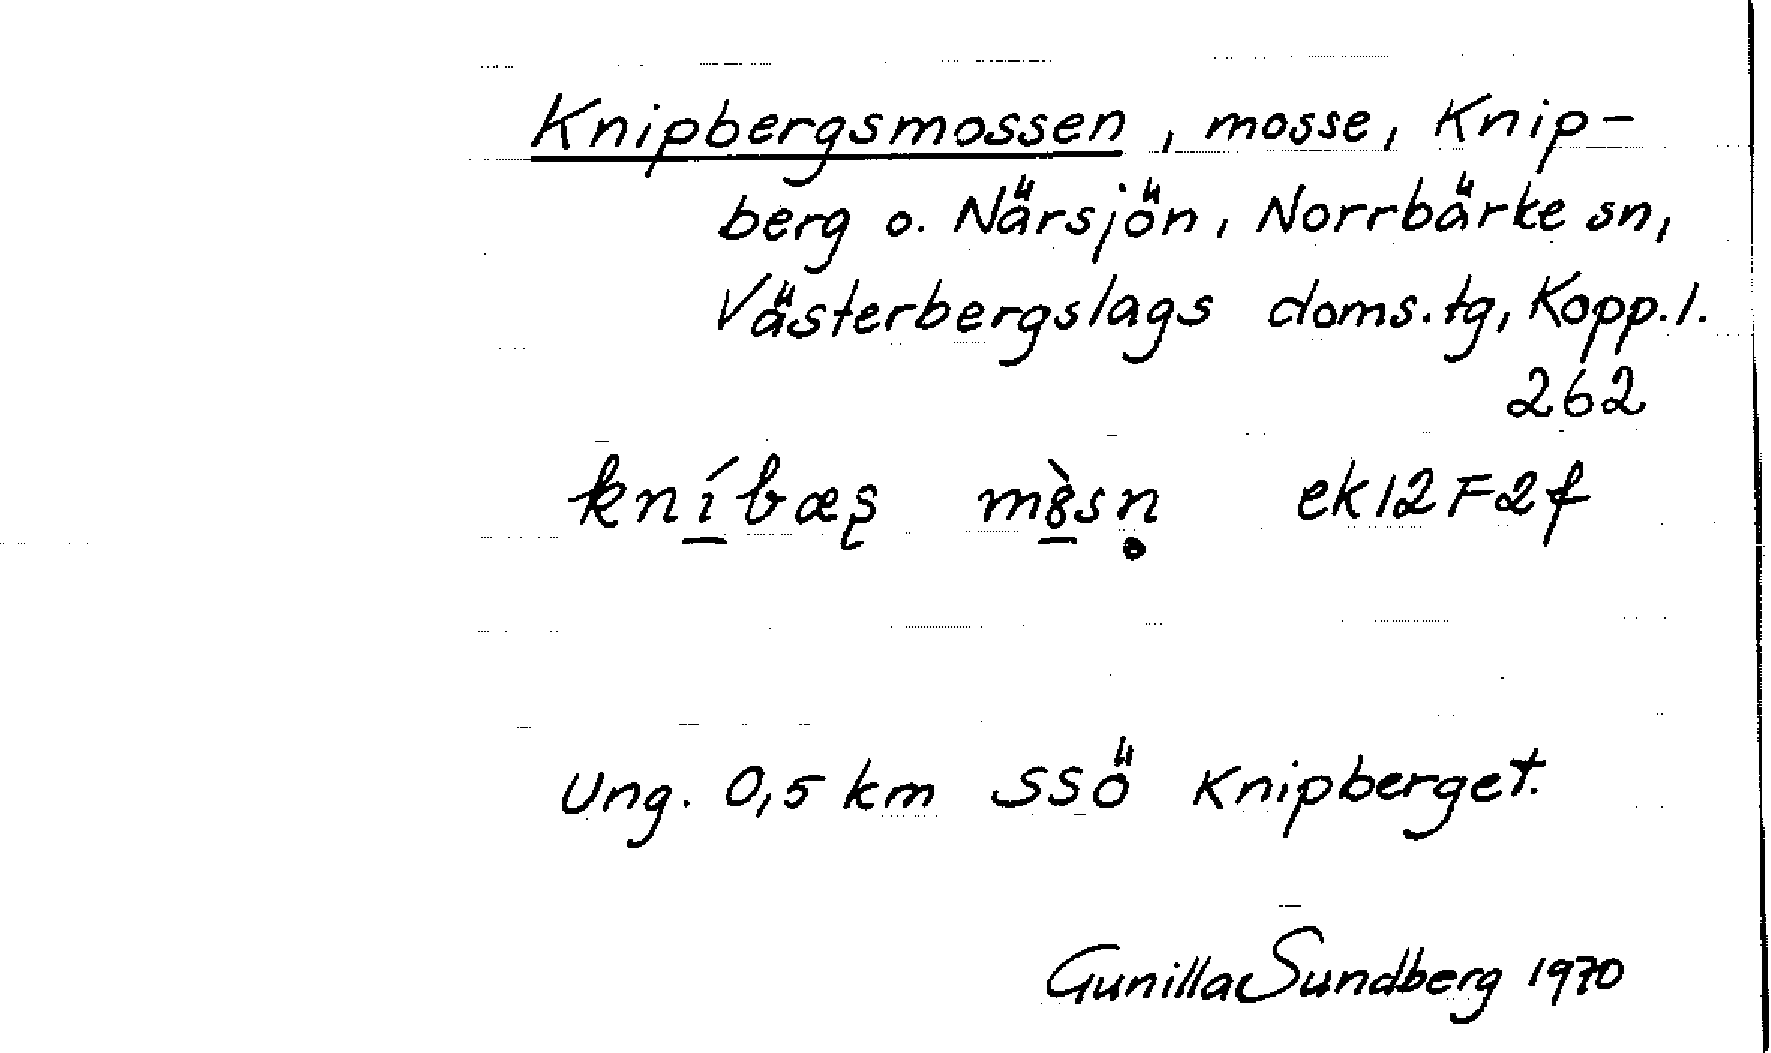 Knipbergsmossen, mosse, Knip-
berg o. Närsjön, Norrbärke sn,
Västerbergslags doms.tg, Kopp.l.
262
kní̲bæʂ mȣ̲̀sṇ ek12F2f
Ung. 0,5 km SSÖ Knipberget.
Gunilla Sundberg 1970